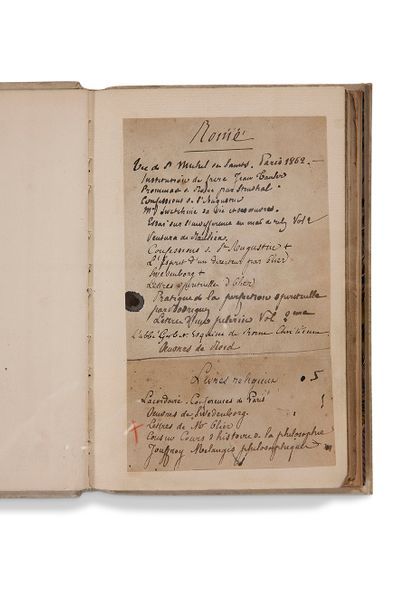 Rome
Vie de St Michel des Saints. Paris 1862.
Institutions de frère Jean Tauler
Promenades de Rome par Stendhal
Confessions de St Augustin
Mme Swetchine sa vie et ses œuvres.
Essai sur l'indifférence en mat. de relig Vol 2
Ventura de Raulica.
Confessions de St Augustin +
L'Esprit d'un directeur par Olier
Swedenborg +
Lettres spirituelles d'Olier
Pratique de la perfection spirituelle
par Rodriguez
Lettres d'un pélerin Vol. 2me
L'abbé Gerbet Esquisse de Rome Chrétienne
Œuvres de
Livres religieux • 5
Lacordaire. Conférences de Paris
Œuvres de Swedenborg.
Lettres de Mr Olier
Cousin Cours d'histoire de la philosophie
Jouffroy Mélanges philosophiques